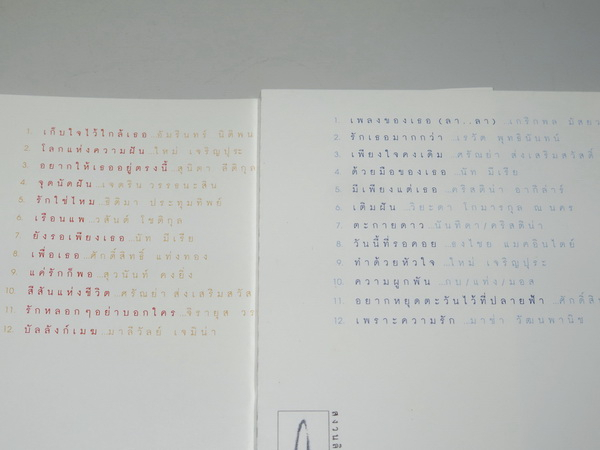 1. เก็บใจไว้ใกล้เธอ ...อัมรินทร์ นิติพน
2. โลกแห่งความฝัน ...ใหม่ เจริญปุระ
3. อยากให้เธออยู่ตรงนี้ ...สุนิตา ลีติกุล
4. จุดนัดฝัน ...เจตริน วรรธนะสิน
5. รักใช่ไหม ...ธิติมา ประทุมทิพย์
6. เรือนแพ ...วสันต์ โชติกุล
7. ยังรอเพียงเธอ ...นัท มีเรีย
8. เพื่อเธอ ...ศักดิ์สิทธิ์ แท่งทอง
9. แค่รักก็พอ ...สุวนันท์ คงยิ่ง
10. สีสันแห่งชีวิต ...ศรัณย่า ส่งเสริมสวัส
11. รักหลอกๆอย่าบอกใคร ...จิรายุส วร
12. บัลลังก์เมฆ ...มาลีวัลย์ เจมีน่า
1. เพลงของเธอ (ลา..ลา) ...เกริกพล มัสยา
2. รักเธอมากกว่า ...เรวัต พุทธินันทน์
3. เพียงใจคงเดิม ...ศรัณย่า ส่งเสริมสวัสดิ์
4. ด้วยมือของเธอ ...นัท มีเรีย
5. มีเพียงแต่เธอ ...คริสติน่า อากีล่าร์
6. เติมฝัน ...วิยะดา โกมารกุล ณ นคร
7. ตะกายดาว ...นันทิดา/คริสติน่า
8. วันนี้ที่รอคอย ...ธงไชย แมคอินไตย์
9. ทำด้วยหัวใจ ...ใหม่ เจริญปุระ
10. ความผูกพัน ...กบ/แท่ง/มอส
11. อยากหยุดตะวันไว้ที่ปลายฟ้า ...ศักดิ์สิ
12. เพราะความรัก ...มาช่า วัฒนพานิช
สงวนลิ